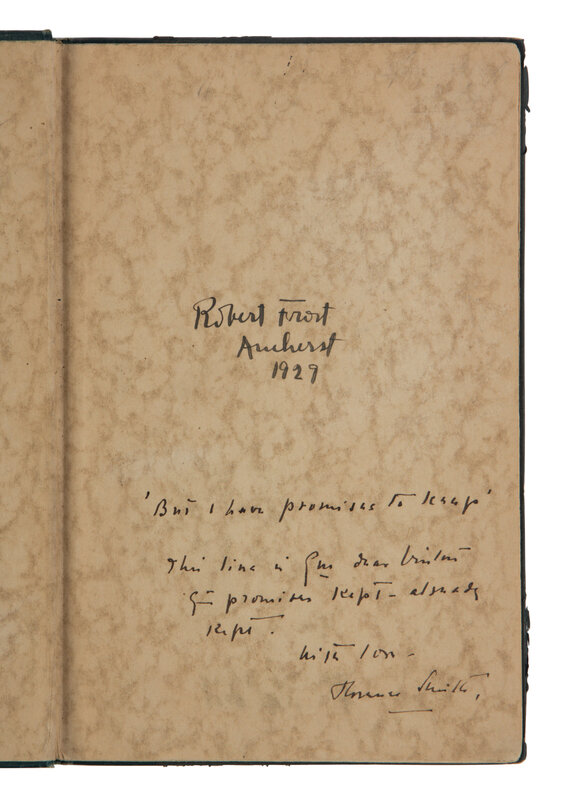 Robert Frost
Amherst
1929
'But I have promises to keep'
This line is for dear
for promises kept - already
kept.
with love -
Florence Smith.